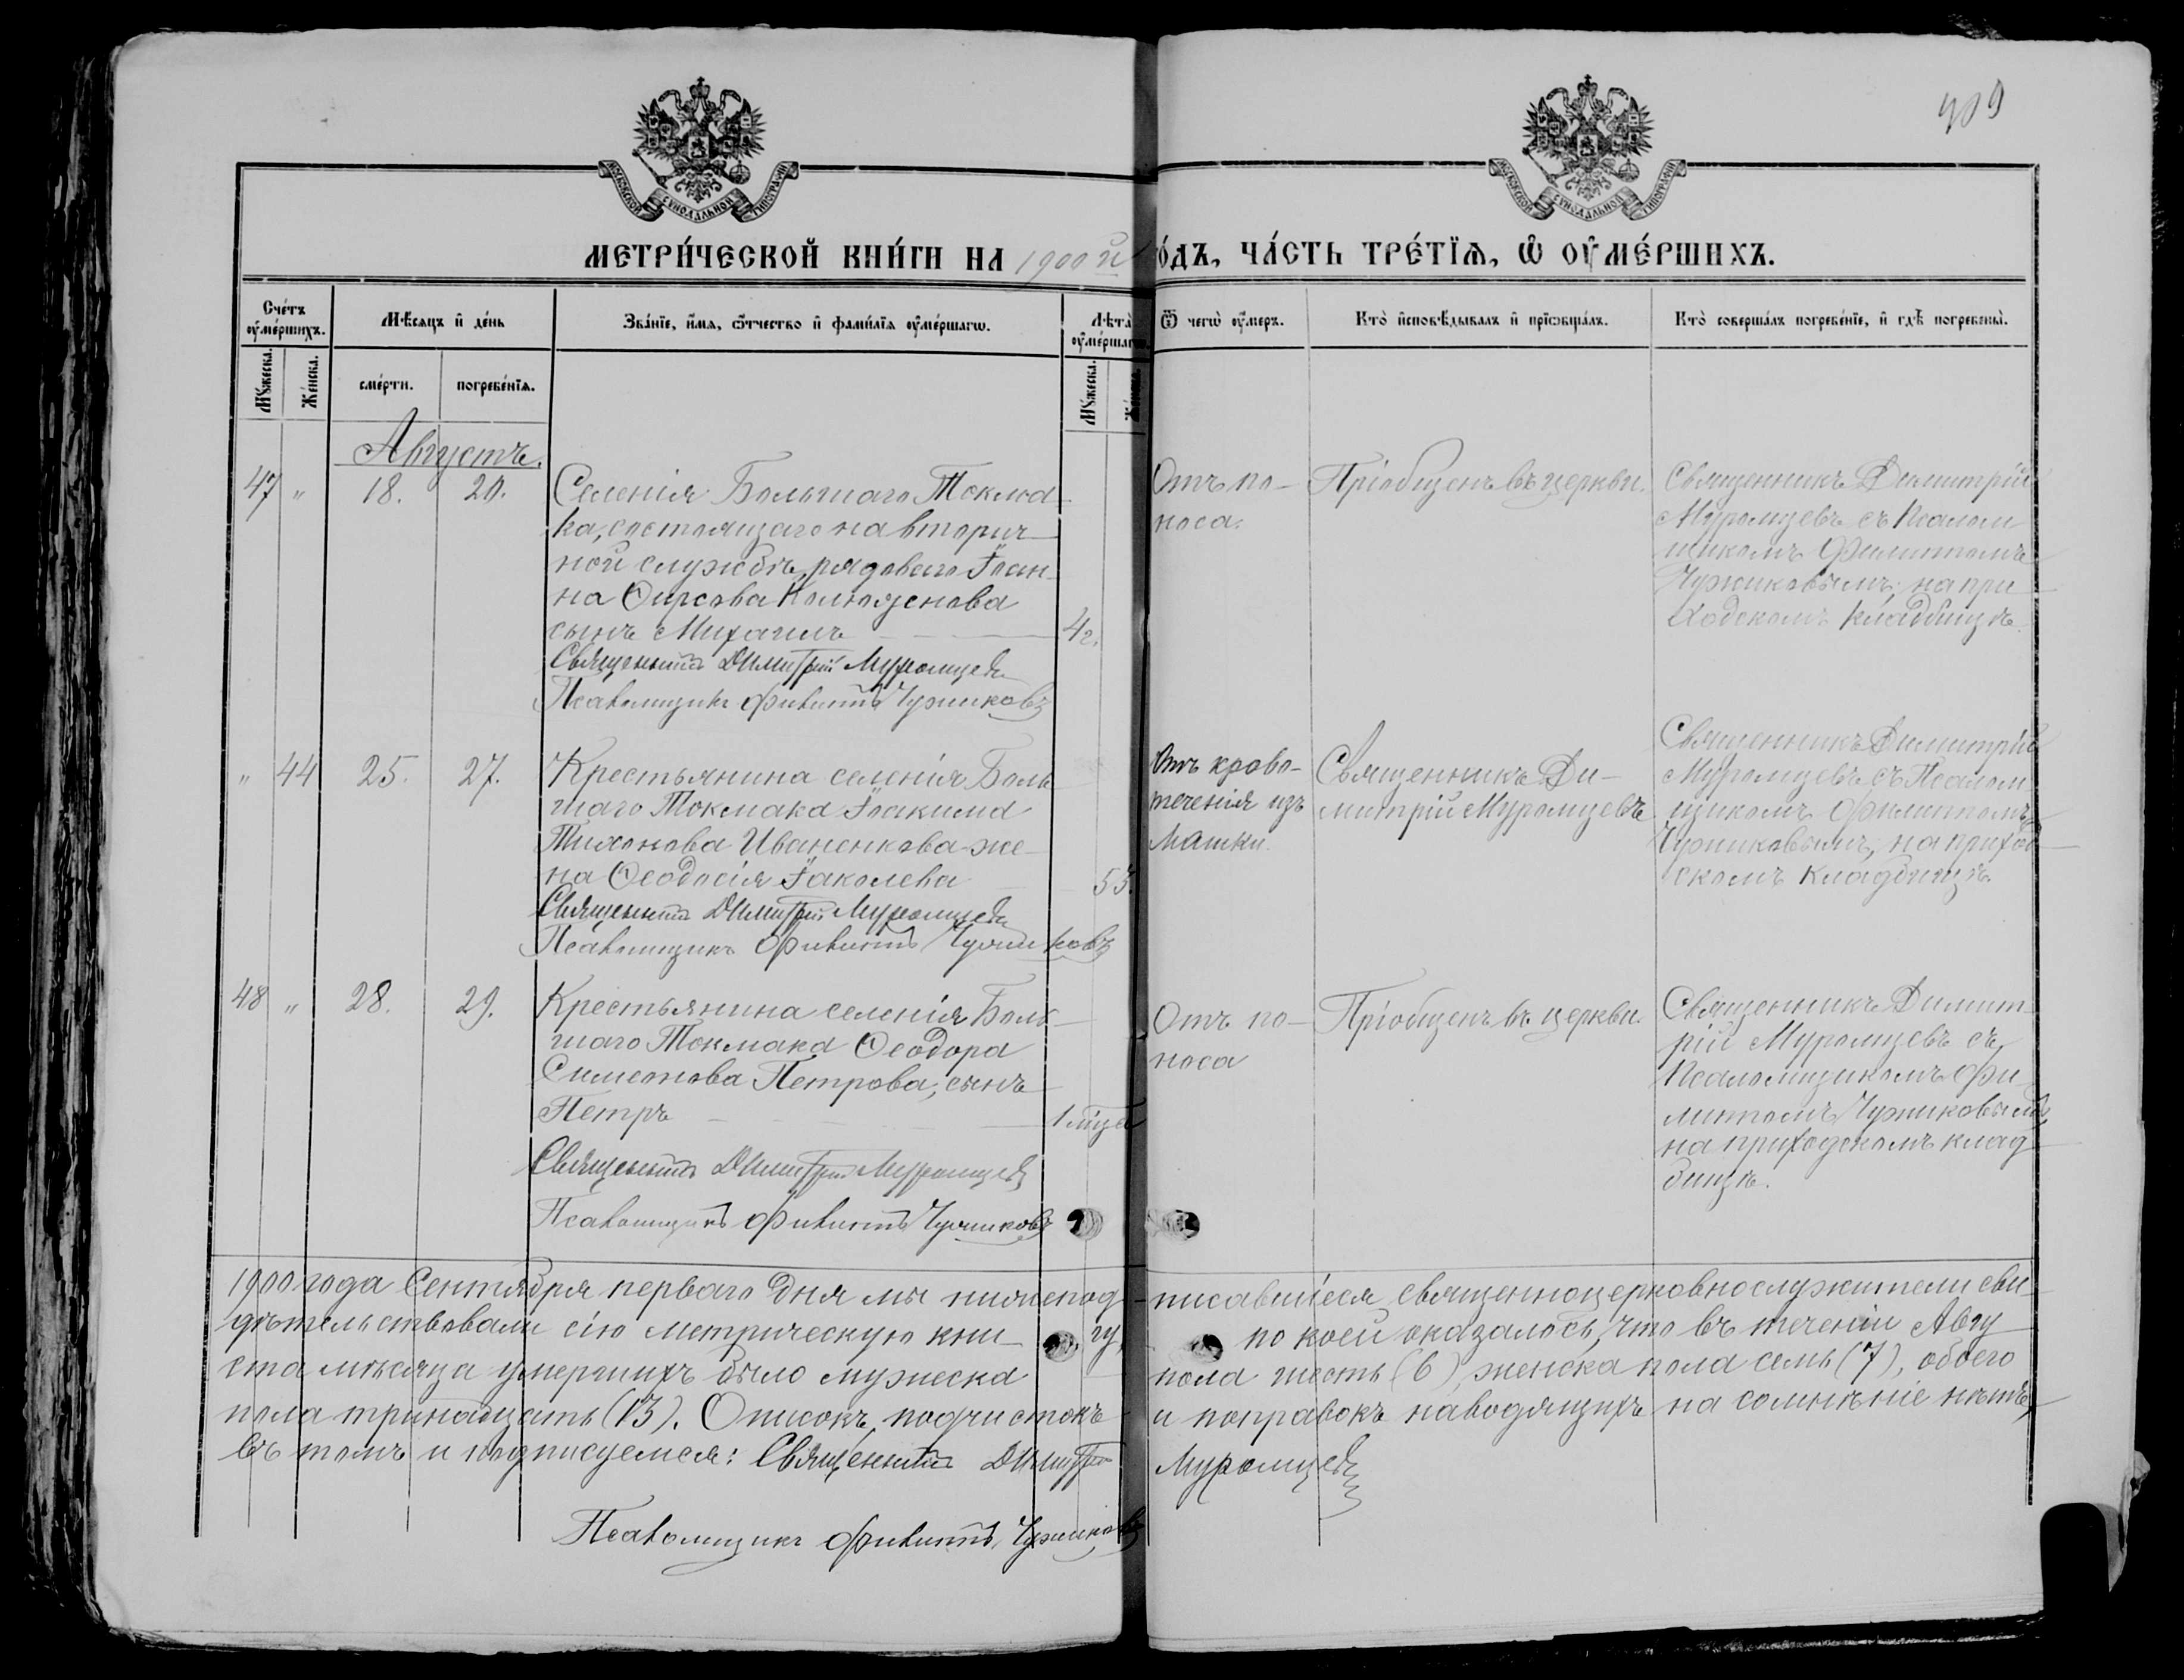 909
МОСКОВСКОЙ СѴНОДАЛЬНОЙ ТИПОГРАФІИ
МОСКОВСКОЙ СѴНОДАЛЬНОЙ ТИПОГРАФІИ
МЕТРИ́ЧЕСКОЙ КНИ́ГИ НА 1900 й го́дъ, ЧА́СТЬ ТРЕ́ТІѦ, Ѡ҆ ОУ҆МЕ́РШИХЪ.
Сче́тъ оу҆ме́ршихъ.
Мꙋ́жеска.
Же́нска.
Мѣ́сѧцъ и҆ де́нь
сме́рти.
погребе́нїѧ.
Зва́нїе, и҆́мѧ, ѻ҆́тчество и҆ фами́лїѧ оу҆ме́ршагѡ.
Лѣ́та оу҆ме́ршагѡ
Мꙋ́жеска.
Же́нска
Ѿ чегѡ̀ оу҆́меръ.
Кто̀ и҆сповѣ́дывалъ и҆ прїѻбща́лъ.
Кто̀ соверша́лъ погребе́нїе, и҆ гдѣ̀ погребены̀.
Августъ.
47 " 18. 20.
Селенія Большаго Токма
ка, состоящаго на вторич
ной службѣ, рядоваго Іоан
на Ѳирсова
сынъ Михаилъ 4 г.
Священникъ Димитрій Муромцевъ
Псаломщикъ Филиппъ Чужиковъ
Отъ по-
носа.
Пріобщенъ въ церкви.
Священникъ Димитрій
Муромцевъ съ Псалом
щикомъ Филиппомъ
Чужиковымъ, на при
ходскомъ кладбищѣ.
" 44 25. 27.
Крестьянина селенія Боль
шаго Токмака Іоакима
Тихонова Иваненкова же-
на Ѳеодосія Іаковлева 53
Священникъ Димитрій Муромцевъ
Псаломщикъ Филиппъ Чужиковъ
Отъ крово-
теченія изъ
матки.
Священникъ Ди-
митрій Муромцевъ
Священникъ Димитрій
Муромцевъ съ Псалом
щикомъ Филиппомъ
Чужиковымъ, на приход
скомъ кладбищѣ.
48 " 28. 29.
Крестьянина селенія Боль-
шаго Токмака Ѳеодора
Симеонова Петрова, сынъ
Петръ 1 мца
Священникъ Димитрій Муромцевъ
Псаломщикъ Филиппъ Чужиковъ
Отъ по-
носа
Пріобщенъ въ церкви.
Священникъ Димит-
рій Муромцевъ съ
Псаломщикомъ Фи-
липпомъ Чужиковымъ,
на приходскомъ клад
бищѣ.
1900 года Сентября перваго дня мы нижепод-писавшіеся священноцерковнослужители сви
дѣтельствовали сію метрическую кни-гу, по коей оказалось, что въ теченіи Авгу
ста мѣсяца умершихъ было мужеска пола шесть (6), женска пола семь (7), обоего
пола тринадцать (13). Описокъ, подчистокъ и поправокъ наводящихъ на сомнѣніе нѣтъ,
въ томъ и подписуемся: Священникъ Димитрій Муромцевъ
Псаломщикъ Филиппъ Чужиковъ